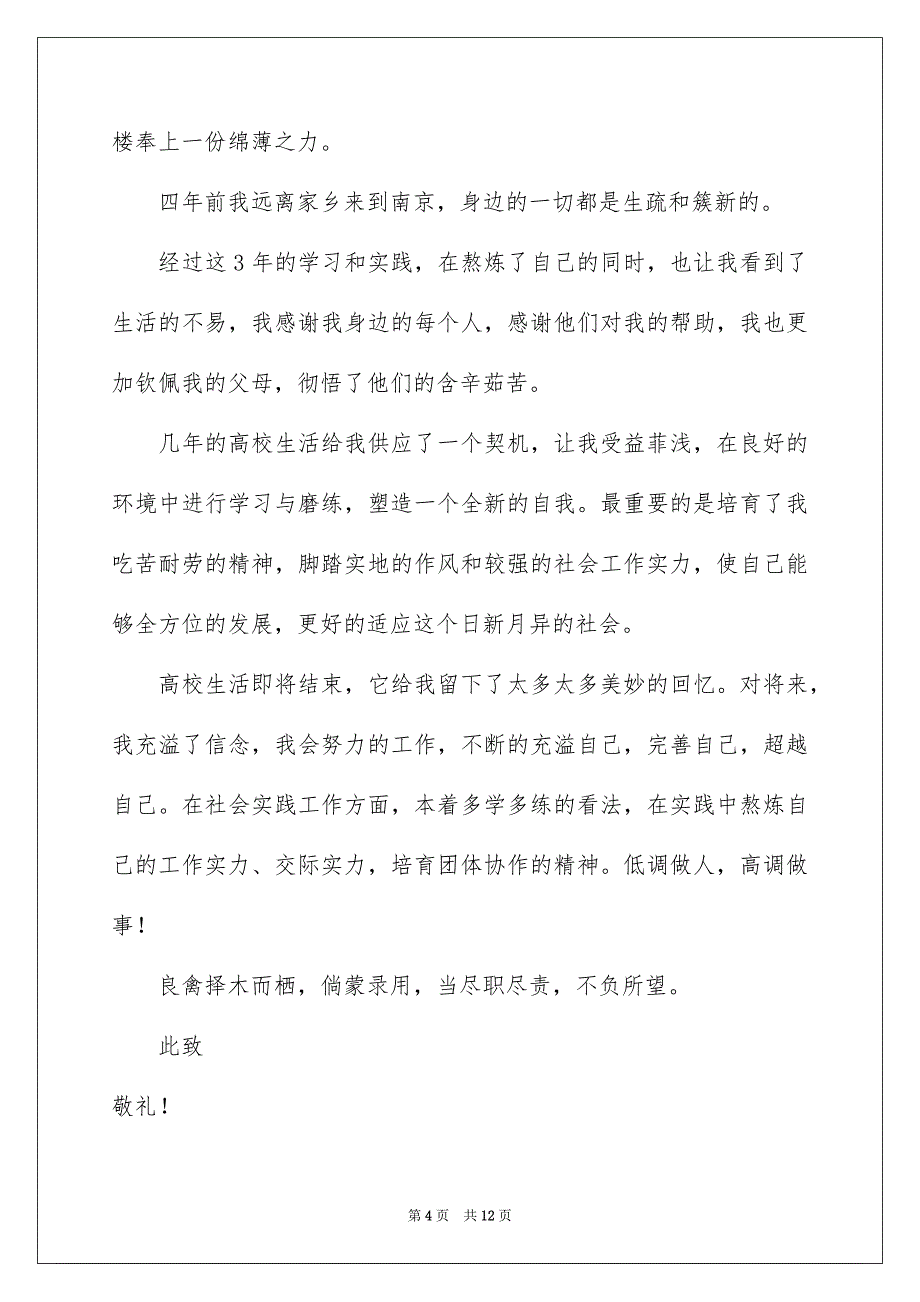 楼奉上一份绵薄之力。
四年前我远离家乡来到南京，身边的一切都是生疏和簇新的。
经过这 3 年的学习和实践，在熬炼了自己的同时，也让我看到了
生活的不易，我感谢我身边的每个人，感谢他们对我的帮助，我也更
加钦佩我的父母，彻悟了他们的含辛茹苦。
几年的高校生活给我供应了一个契机，让我受益菲浅，在良好的
环境中进行学习与磨练，塑造一个全新的自我。最重要的是培育了我
吃苦耐劳的精神，脚踏实地的作风和较强的社会工作实力，使自己能
够全方位的发展，更好的适应这个日新月异的社会。
高校生活即将结束，它给我留下了太多太多美妙的回忆。对将来，
我充溢了信念，我会努力的工作，不断的充溢自己，完善自己，超越
自己。在社会实践工作方面，本着多学多练的看法，在实践中熬炼自
己的工作实力、交际实力，培育团体协作的精神。低调做人，高调做
事！
良禽择木而栖，倘蒙录用，当尽职尽责，不负所望。
此致
敬礼！
第 4 页 共 12 页